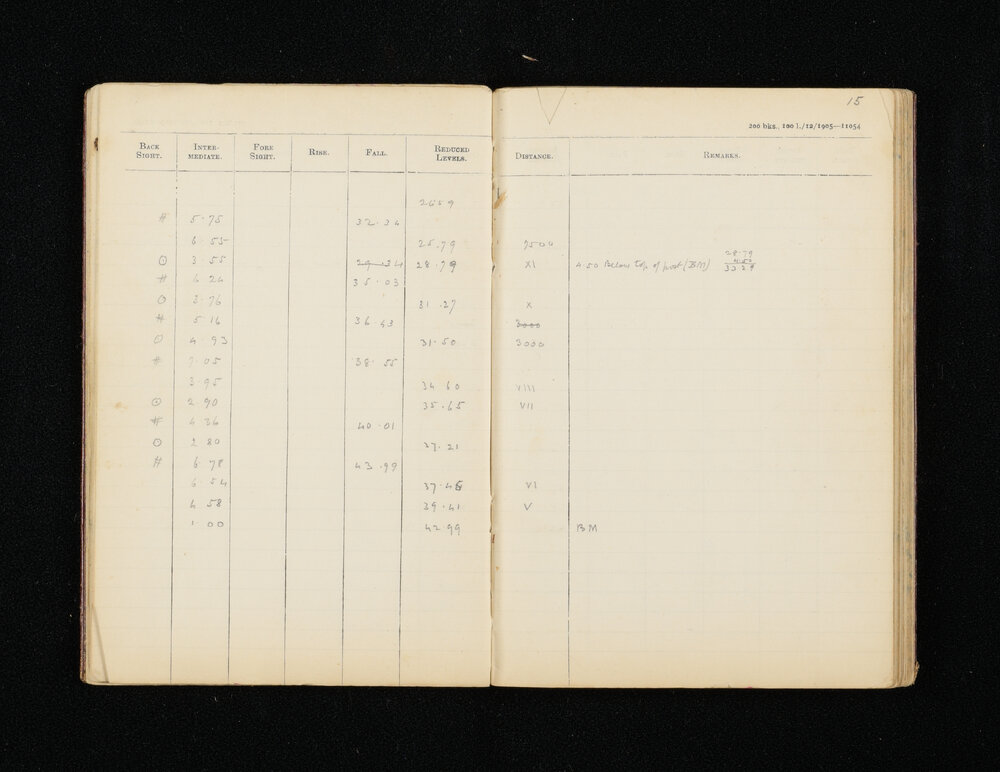 15
200 bks., 100 l./12/1905—11054
BACK SIGHT. INTER-MEDIATE. FORE SIGHT. RISE. FALL. REDUCED LEVELS. DISTANCE. REMARKS.
2659
# 5.75 32.34
6 55 25.79 2500
⊙ 3.55 29.34 28.79 XI 4.50 Below top of post (BM) 28.79
4.50
33 29
# 6 24 35.03
⊙ 3.76 31.27 X
# 5 16 36.43 3000
⊙ 4.93 31.50 3000
# 7.05 38.55
3.95 34 60 VIII
⊙ 2 90 35.65 VII
# 4 36 40.01
⊙ 2 80 37.21
# 6.78 43.99
6.54 37.45 VI
4 58 39.41 V
1 00 42 99 BM